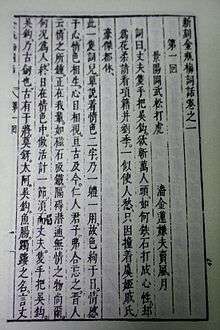 新刻金瓶梅詞話卷之一
第一回
景陽岡武松打虎　潘金蓮嫌夫賣風月
詞曰丈夫隻手把吳鈎欲斬萬人頭如何鐵石打成心性却
為花柔請看項籍并劉季一似使人愁只因撞着虞姬戚氏
豪傑都休
此一隻詞兒單說着情色二字乃一體一用故色絢于目情感
于心情色相生心目相視亘古及今仁人君子弗合忘之晉人
云情之所鍾正在我輩如磁石吸鐵隔碍潛通無情之物尚爾
何况為人終日在情色中做活計一節須而丈夫隻手把吳鈎
吳鈎乃古劍也古有干將莫鋣太阿吳鈎魚腸躅鏤之名言丈